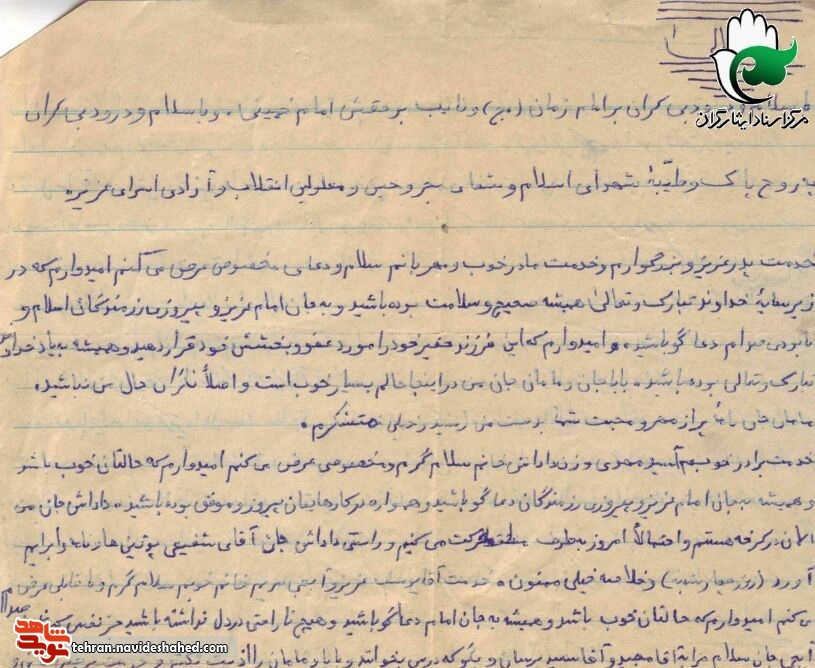 مرکز اسناد ایثارگران
با سلام و درود بی کران بر امام زمان (عج) و نایب بر حقش امام خمینی. و با سلام و درود بی کران
به روح پاک و طیّبهٔ شهدای اسلام و شفای مجروحین و معلولین انقلاب و آزادی اسرای عزیز.
خدمت پدر عزیز و بزرگوارم و خدمت مادر خوب و مهربانم سلام و دعای مخصوص عرض می کنم امیدوارم که در
زیر سایهٔ خداوند تبارک و تعالی همیشه صحیح و سلامت بوده باشید و به جان امام عزیز و پیروزی رزمندگان اسلام و
نابودی صدام دعا گو باشید. و امیدوارم که این فرزند حقیر خود را مورد عفو و بخشش خود قرار دهید و همیشه به یاد خداوند
تبارک و تعالی بوده باشید. بابا جان و مامان جان من در اینجا حالم بسیار خوب است و اصلاً نگران حال من نباشید.
مامان جان نامهٔ پر از مهر و محبت شما بدست من رسید و خیلی متشکرم.
خدمت برادر خوبم آسید مهدی و زن داداش خانم سلام گرم و مخصوصی عرض می کنم امیدوارم که حالتان خوب باشد
و همیشه به جان امام عزیز و پیروزی رزمندگان دعا گو باشید و همواره در کارهایتان پیروز و موفق بوده باشید. داداش جان من
الان در کرفه هستم و احتمالاً امروز به طرف منطقه حرکت می کنیم و راستی داداش جان آقای شفیعی پوتین ها و نامه را برایم
آورد (روز چهارشنبه) و خلاصه خیلی ممنون. خدمت آقا یوسف عزیز و آبجی مریم خانم خوبم سلام گرم و با قابلی عرض
می کنم امیدوارم که حالتان خوب باشد و همیشه به جان امام دعا گو باشید و هیچ ناراحتی در دل نداشته باشید جز نفس کجی
صدام
آبجی جان سلام مرا به آقا مجید و آقا سعید برسان و بگو که درس بخوانند و بابا و مامان را اذیت نکنند
نوید شاهد
tehran.navideshahed.com